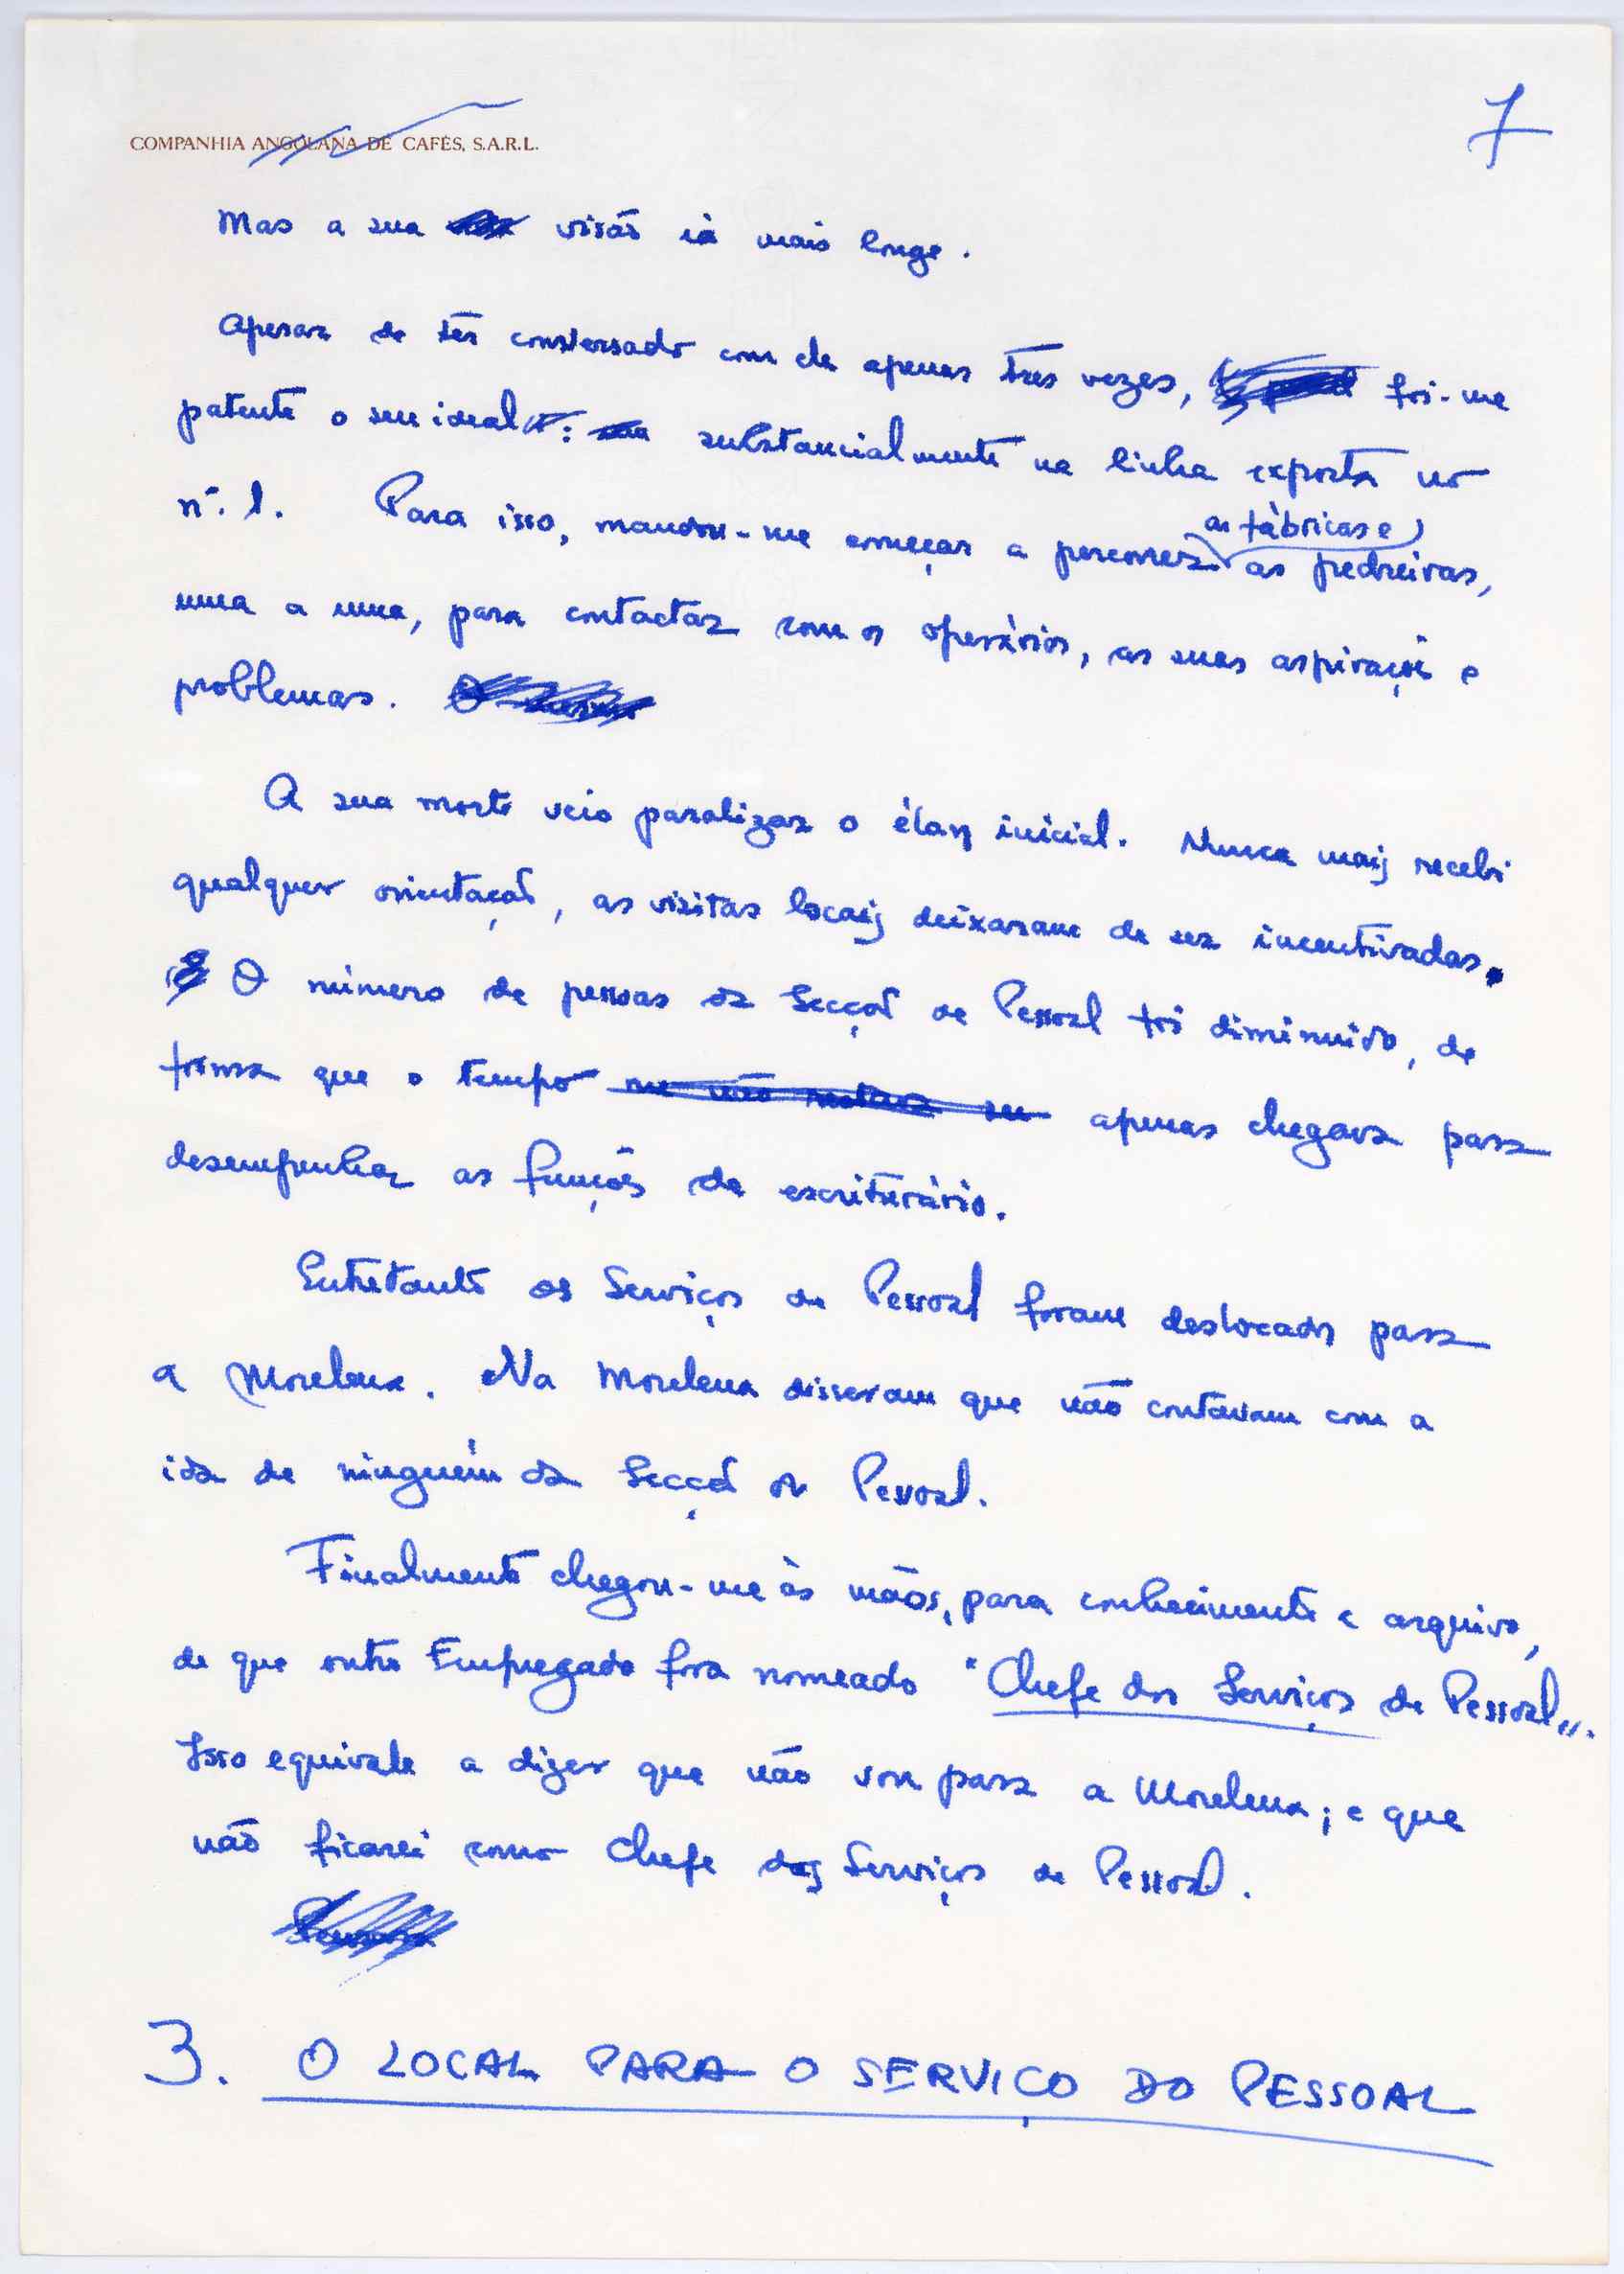 COMPANHIA ANGOLANA DE CAFÉS, S.A.R.L.
7
Mas a sua visão ia mais longe.
Apesar de ter conversado com ele apenas três vezes, foi-me
patente o seu ideal: substancialmente na linha exposta no
n.º 1. Para isso, mandou-me começar a percorrer as fábricas e as pedreiras,
uma a uma, para contactar com os operários, as suas aspirações e
problemas.
A sua morte veio paralizar o élan inicial. Nunca mais recebi
qualquer orientação, as visitas locais deixaram de ser incentivadas.
O número de pessoas da Secção de Pessoal foi diminuido, de
forma que o tempo me não restava apenas chegava para
desempenhar as funções de escriturário.
Entretanto os Serviços de Pessoal foram deslocados para
a Morelena. Na Morelena disseram que não contavam com a
ida de ninguém da Secção de Pessoal.
Finalmente chegou-me às mãos, para conhecimento e arquivo,
de que outro Empregado fora nomeado "Chefe dos Serviços de Pessoal".
Isso equivale a dizer que não vou para a Morelena; e que
não ficarei como Chefe dos Serviços de Pessoal.
3. O LOCAL PARA O SERVIÇO DO PESSOAL